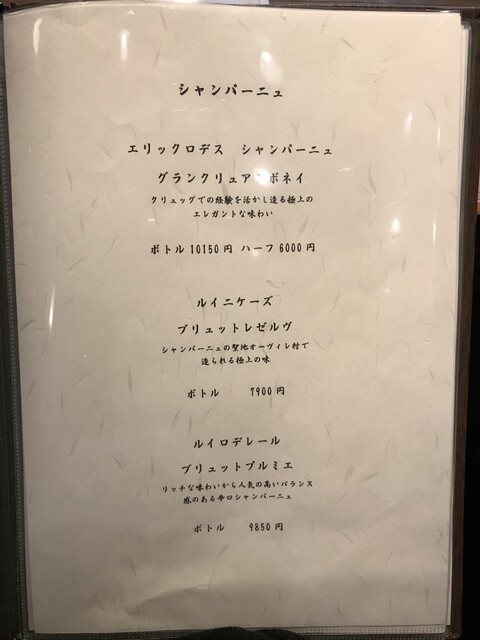 シャンパーニュ
エリックロデス シャンパーニュ
グランクリュアンボネイ
クリュッグでの経験を活かし造る極上の
エレガントな味わい
ボトル10150円 ハーフ6000円
ルイニケーズ
ブリュットレゼルヴ
シャンパーニュの聖地オーヴィレ村で
造られる極上の味
ボトル 7900円
ルイロデレール
ブリュットプルミエ
リッチな味わいから人気の高いバランス
感のある辛口シャンパーニュ
ボトル 9850円